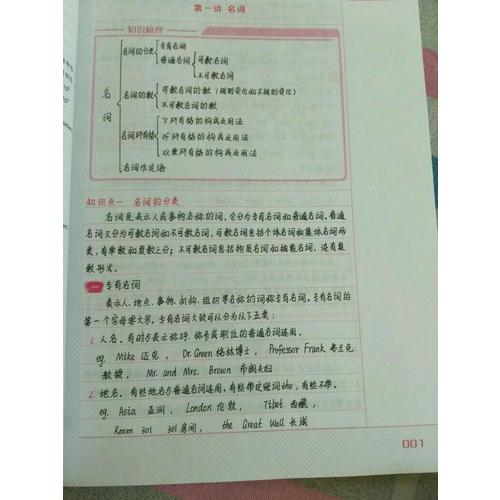 第一讲 名词
知识梳理
名词
名词的分类
专有名词
普通名词
可数名词
不可数名词
名词的数
可数名词的数(规则变化和不规则变化)
不可数名词的数
名词所有格
's所有格的构成及用法
of所有格的构成及用法
双重所有格的构成及用法
名词作定语
知识点一 名词的分类
名词是表示人或事物名称的词,它分为专有名词和普通名词。普通
名词又分为可数名词和不可数名词,可数名词包括个体名词和集体名词两
类,有单数和复数之分;不可数名词包括物质名词和抽象名词,没有复
数形式。
一 专有名词
表示人、地点、事物、机构、组织等名称的词称专有名词。专有名词的
第一个字母要大写。专有名词大致可以分为以下五类:
1. 人名。有时与表示称呼、称号或职位的普通名词连用。
eg. Mike 迈克, Dr. Green 格林博士, Professor Frank 弗兰克
教授, Mr. and Mrs. Brown 布朗夫妇
2. 地名。有些地名与普通名词连用,有些带定冠词the,有些不带。
eg. Asia 亚洲, London 伦敦, Tibet 西藏,
Room 301 301房间, the Great Wall 长城
001